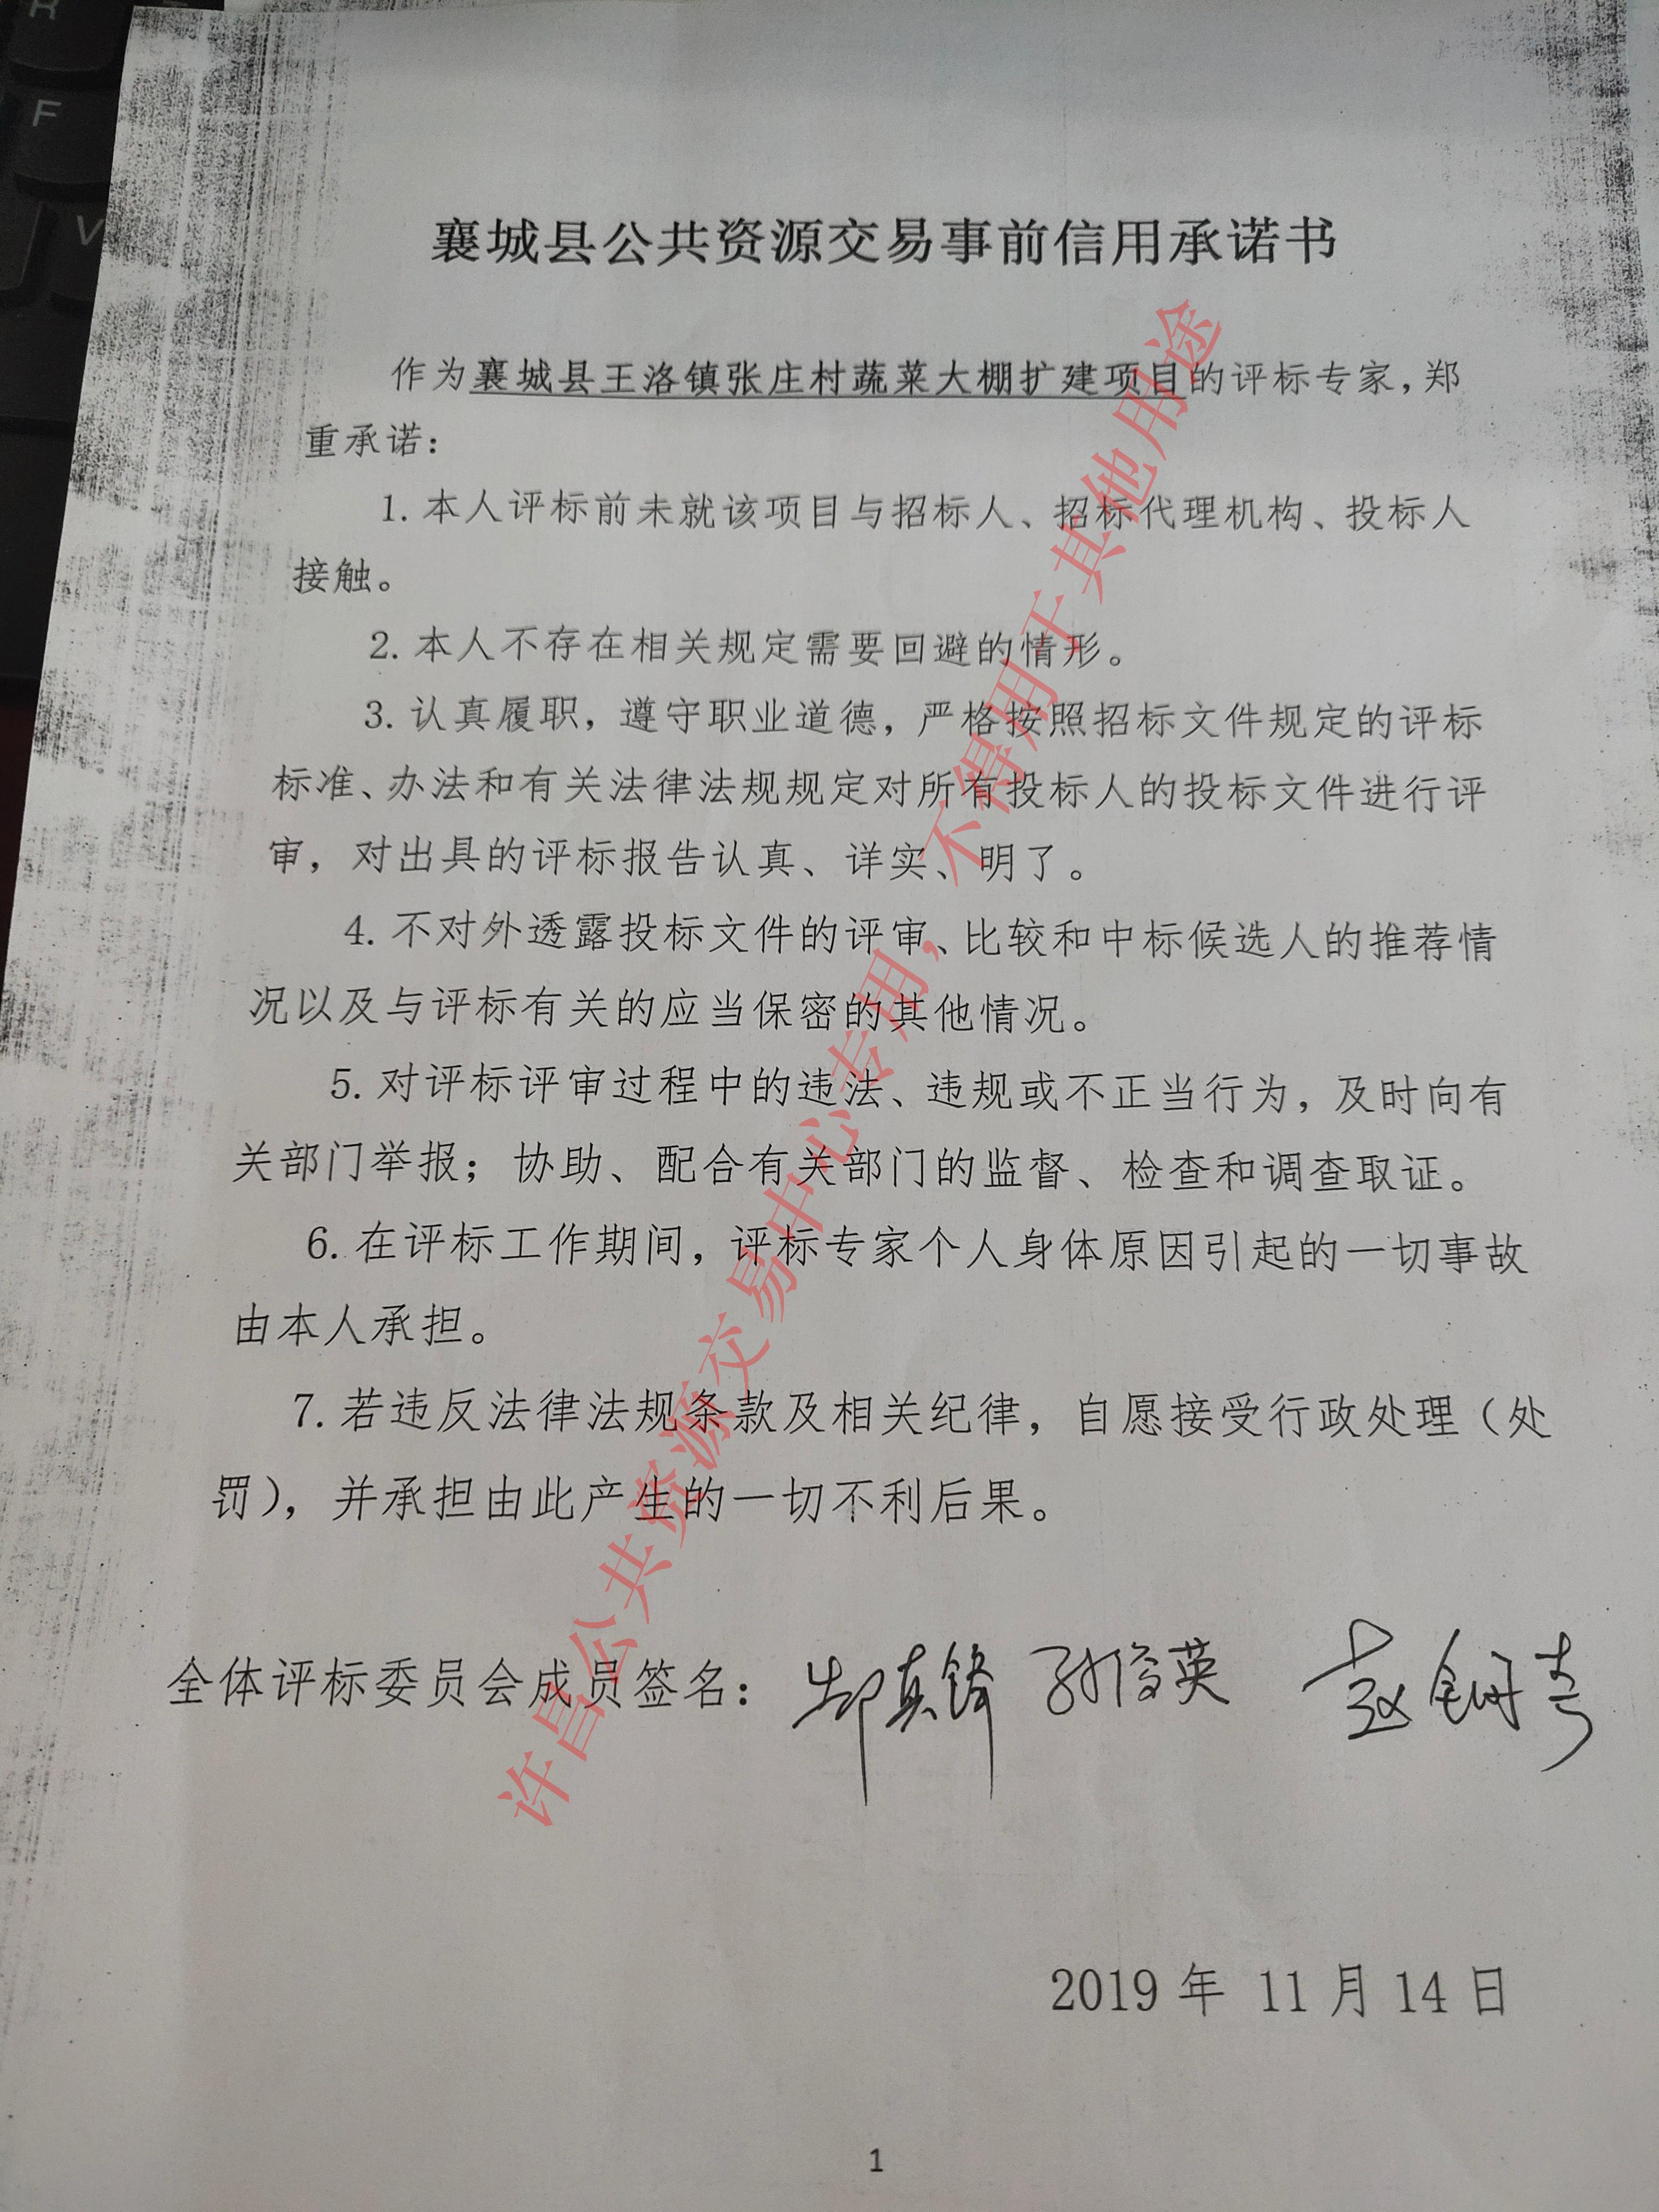 R
F
V
襄城县公共资源交易事前信用承诺书
作为襄城县王洛镇张庄村蔬菜大棚扩建项目的评标专家，郑
重承诺：
1. 本人评标前未就该项目与招标人、招标代理机构、投标人
接触。
2. 本人不存在相关规定需要回避的情形。
3. 认真履职，遵守职业道德，严格按照招标文件规定的评标
标准、办法和有关法律法规规定对所有投标人的投标文件进行评
审，对出具的评标报告认真、详实、明了。
4. 不对外透露投标文件的评审、比较和中标候选人的推荐情
况以及与评标有关的应当保密的其他情况。
5. 对评标评审过程中的违法、违规或不正当行为，及时向有
关部门举报；协助、配合有关部门的监督、检查和调查取证。
6. 在评标工作期间，评标专家个人身体原因引起的一切事故
由本人承担。
7. 若违反法律法规条款及相关纪律，自愿接受行政处理（处
罚），并承担由此产生的一切不利后果。
全体评标委员会成员签名： 孙俊英
2019 年 11 月 14 日
1
许昌公共资源交易中心专用，不得用于其他用途